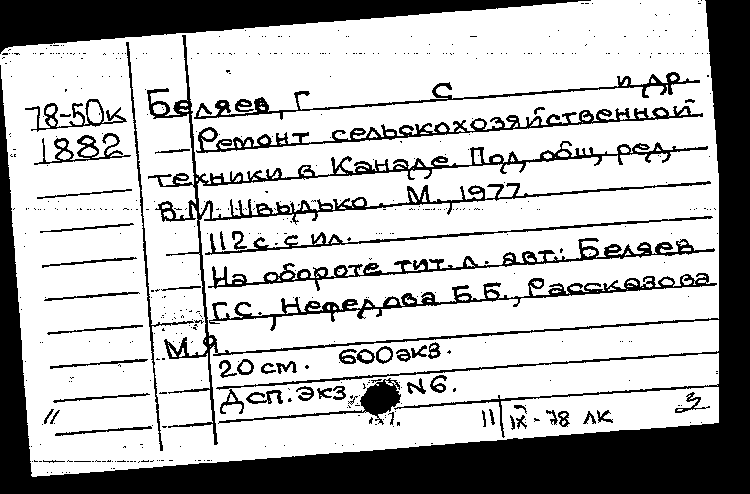 78-50к Беляев, Г С и др.
1882 Ремонт сельскохозяйственной
техники в Канаде. Под общ. ред.
В.М. Швыдько. М., 1977.
112 с. с ил.
На обороте тит. л. авт.: Беляев
Г.С., Нефедова Б.Б., Рассказова
М.Я.
20 см. 600 экз.
Дсп. Экз. N6.
11/IX-78 ЛК